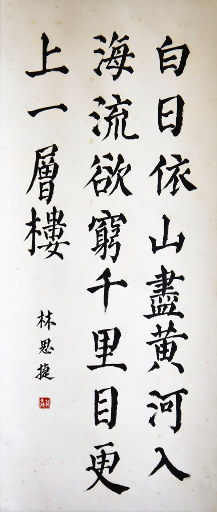 白日依山盡黃河入
海流欲窮千里目更
上一層樓
林思捷